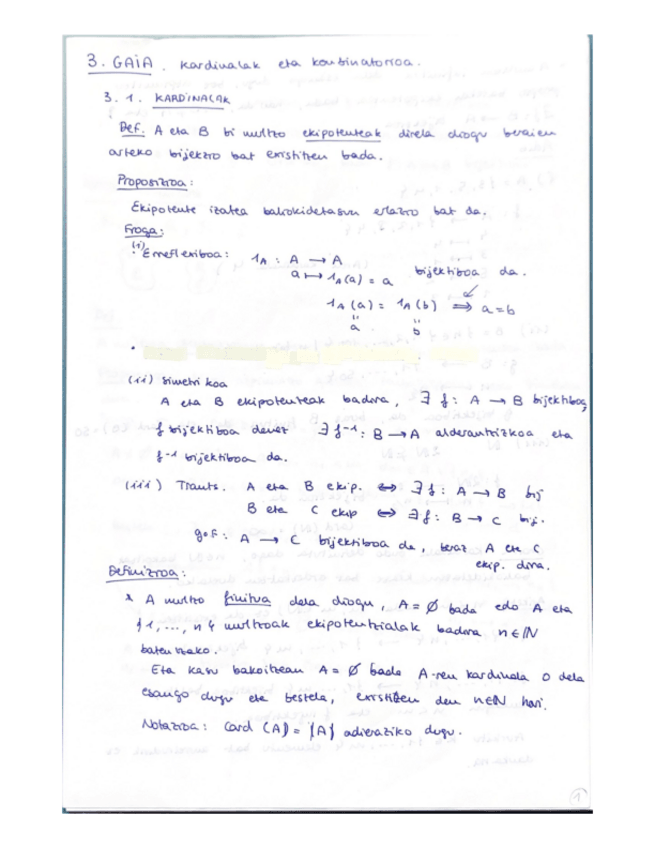 3. GAIA. Kardinalak eta konbinatorioa.
3.1. KARDINALAK
Def: A eta B bi multzo ekipotenteak direla diogu beraien
arteko bijekzio bat existitzen bada.
Proposizioa:
Ekipotente izatea baliokidetasun erlazio bat da.
Froga:
(i) Erreflexiboa: 1A : A → A
a ↦ 1A(a) = a bijektiboa da.
1A(a) = 1A(b) ⇒ a = b
" "
a b
(ii) Simetrikoa
A eta B ekipotenteak badira, ∃ f: A → B bijektiboa,
f bijektiboa denez ∃ f⁻¹: B → A alderantzizkoa eta
f⁻¹ bijektiboa da.
(iii) Trants. A eta B ekip. ⇔ ∃ f: A → B bij
B eta C ekip ⇔ ∃ g: B → C bij.
g∘f: A → C bijektiboa da, beraz A eta C
ekip. dira.
Definizioa:
* A multzo finitua dela diogu, A = ∅ bada edo A eta
{1, ..., n} multzoak ekipotentzialak badira n ∈ ℕ
baterako.
Eta kasu bakoitzean A = ∅ bada A-ren kardinala 0 dela
esango dugu eta bestela, existitzen den n∈ℕ hori.
Notazioa: Card (A) = |A| adieraziko dugu.
1